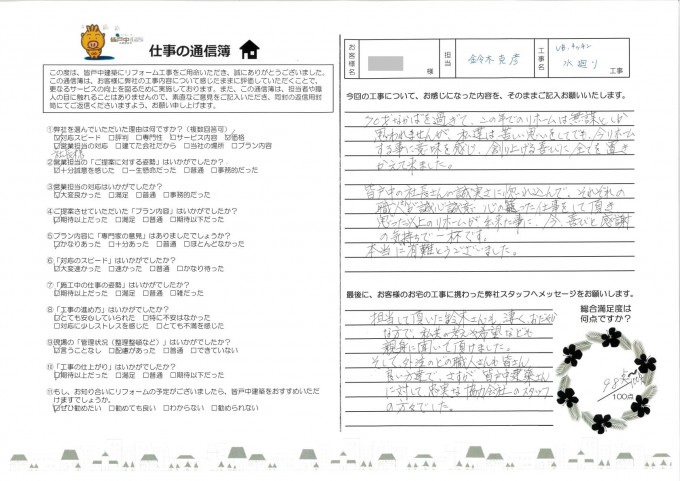 皆戸中
仕事の通信簿
この度は、皆戸中建築にリフォーム工事をご用命いただき、誠にありがとうございました。
この通信簿は、お客様に弊社の工事内容について感じたままに評価していただくことで、
更なるサービスの向上を図るために実施しております。また、この通信簿は、担当者や職
人の目に触れることはありませんので、素直なご意見をご記入いただき、同封の返信用封
筒にてご返信くださいますよう、お願い申し上げます。
①弊社を選んでいただいた理由は何ですか?(複数回答可)
☑対応スピード □評判 □専門性 ☑サービス内容 ☑価格
☑営業担当の対応 □建てた会社だから □当社の場所 □プラン内容
社長様
②営業担当の「ご提案に対する姿勢」はいかがでしたか?
☑十分誠意を感じた □一生懸命だった □普通 □事務的だった
③営業担当の対応はいかがでしたか?
☑大変良かった □満足 □普通 □事務的だった
④ご提案させていただいた「プラン内容」はいかがでしたか?
☑期待以上だった □満足 □普通 □期待以下だった
⑤プラン内容に「専門家の意見」はありましたでしょうか?
☑かなりあった □十分あった □普通 □ほとんどなかった
⑥「対応のスピード」はいかがでしたか?
☑大変速かった □速かった □普通 □かなり待った
⑦「施工中の仕事の姿勢」はいかがでしたか?
☑期待以上だった □満足 □普通 □雑だった
⑧「工事の進め方」はいかがでしたか?
☑とても安心していられた □特に不安はなかった
□対応に少しストレスを感じた □とても不満を感じた
⑨現場の「管理状況(整理整頓など)」はいかがでしたか?
☑言うことなし □配慮があった □普通 □できていない
⑩「工事の仕上がり」はいかがでしたか?
☑期待以上だった □満足 □普通 □期待以下だった
⑪もし、お知り合いにリフォームの予定がございましたら、皆戸中建築をおすすめいただ
けますでしょうか。
☑ぜひ勧めたい □勧めても良い □わからない □勧められない
お客様名
様
担当
鈴木克彦
工事名
UB・キッチン
水廻り
工事
今回の工事について、お感じになった内容を、そのままご記入お願いいたします。
70才なかばを過ぎて、この年でのリホームは無謀としか
思われませんが、私達は苦しい思いをしても、今リホーム
する事に意味を感じ、創り上げる喜びに全てを置き
かえて来ました。
皆戸中の社長さんの誠実さに惚れ込んで、それぞれの
職人が誠心誠意、心の籠った仕事をして頂き
思った以上のリホームが出来た事に、今、喜びと感謝
の気持ちで一杯です。
本当に有難とうございました。
最後に、お客様のお宅の工事に携わった弊社スタッフへメッセージをお願いします。
担当して頂いた鈴木さんも、凄くおだやか
な方で、私共の考えや希望なども
親身に聞いて頂けました。
そして、外注のどの職人さんも皆さん
良い方達で、さすが皆戸中建築さん
に対して忠実な協力会社のスタッフ
の方々でした。
総合満足度は
何点ですか?
98点
100点